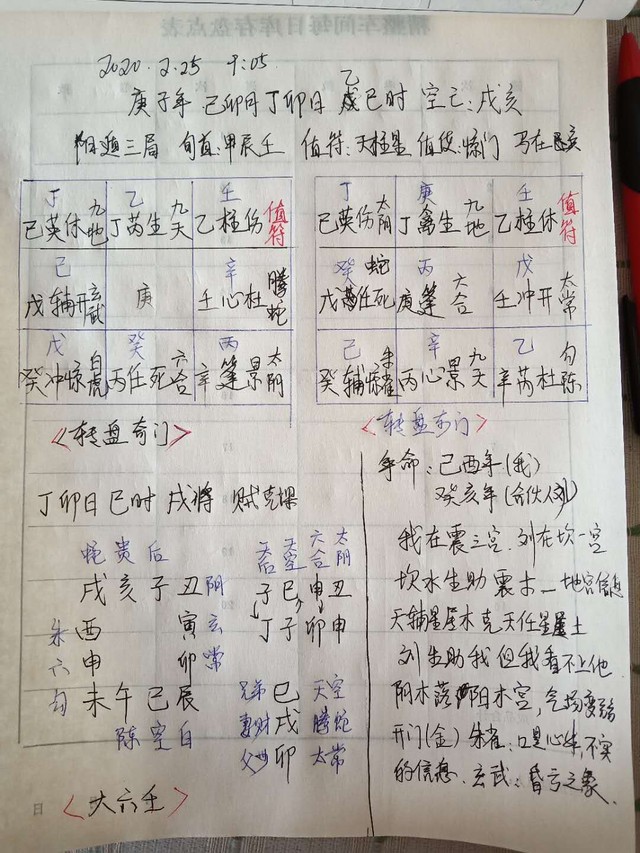 2020.2.25 9:05
乙
庚子年 己卯月 丁卯日 巳时 空亡:戌亥
阳遁三局 旬首:甲辰壬 值符:天柱星 值使:惊门 马在亥
丁 乙 壬
己英休九地 丁芮生九天 乙柱伤值符
己 辛
戊辅开玄武 庚 壬心杜腾蛇
戊 癸 丙
癸冲惊白虎 丙任死六合 辛蓬景太阴
<转盘奇门>
丁 庚 壬
己英伤太阴 丁禽生九地 乙柱休值符
癸蛇 丙 戊
戊任死 庚蓬六合 壬冲开太常
己 辛 乙
癸辅惊朱雀 丙心景九天 辛芮杜勾陈
<转盘奇门>
丁卯日 巳时 戌将 贼克课
蛇 贵 后
戌 亥 子 丑 阴
朱 酉 寅 玄
六 申 卯 常
勾 未 午 巳 辰
陈 空 白
天后 天空 六合 太阴
子 巳 申 丑
丁 子 卯 申
兄弟 巳 天空
妻财 戌 腾蛇
父母 卯 太常
<大六壬>
年命:己酉年(我)
癸亥年(合伙人刘)
我在震三宫.刘在坎一宫
坎水生助震木—地宫信息
天辅星属木克天任星属土
刘生助我但我看不上他
阴木落阳木宫,气场变弱
开门(金) 朱雀:口是心非,不实
的信息.玄武:昏亏之象.
日